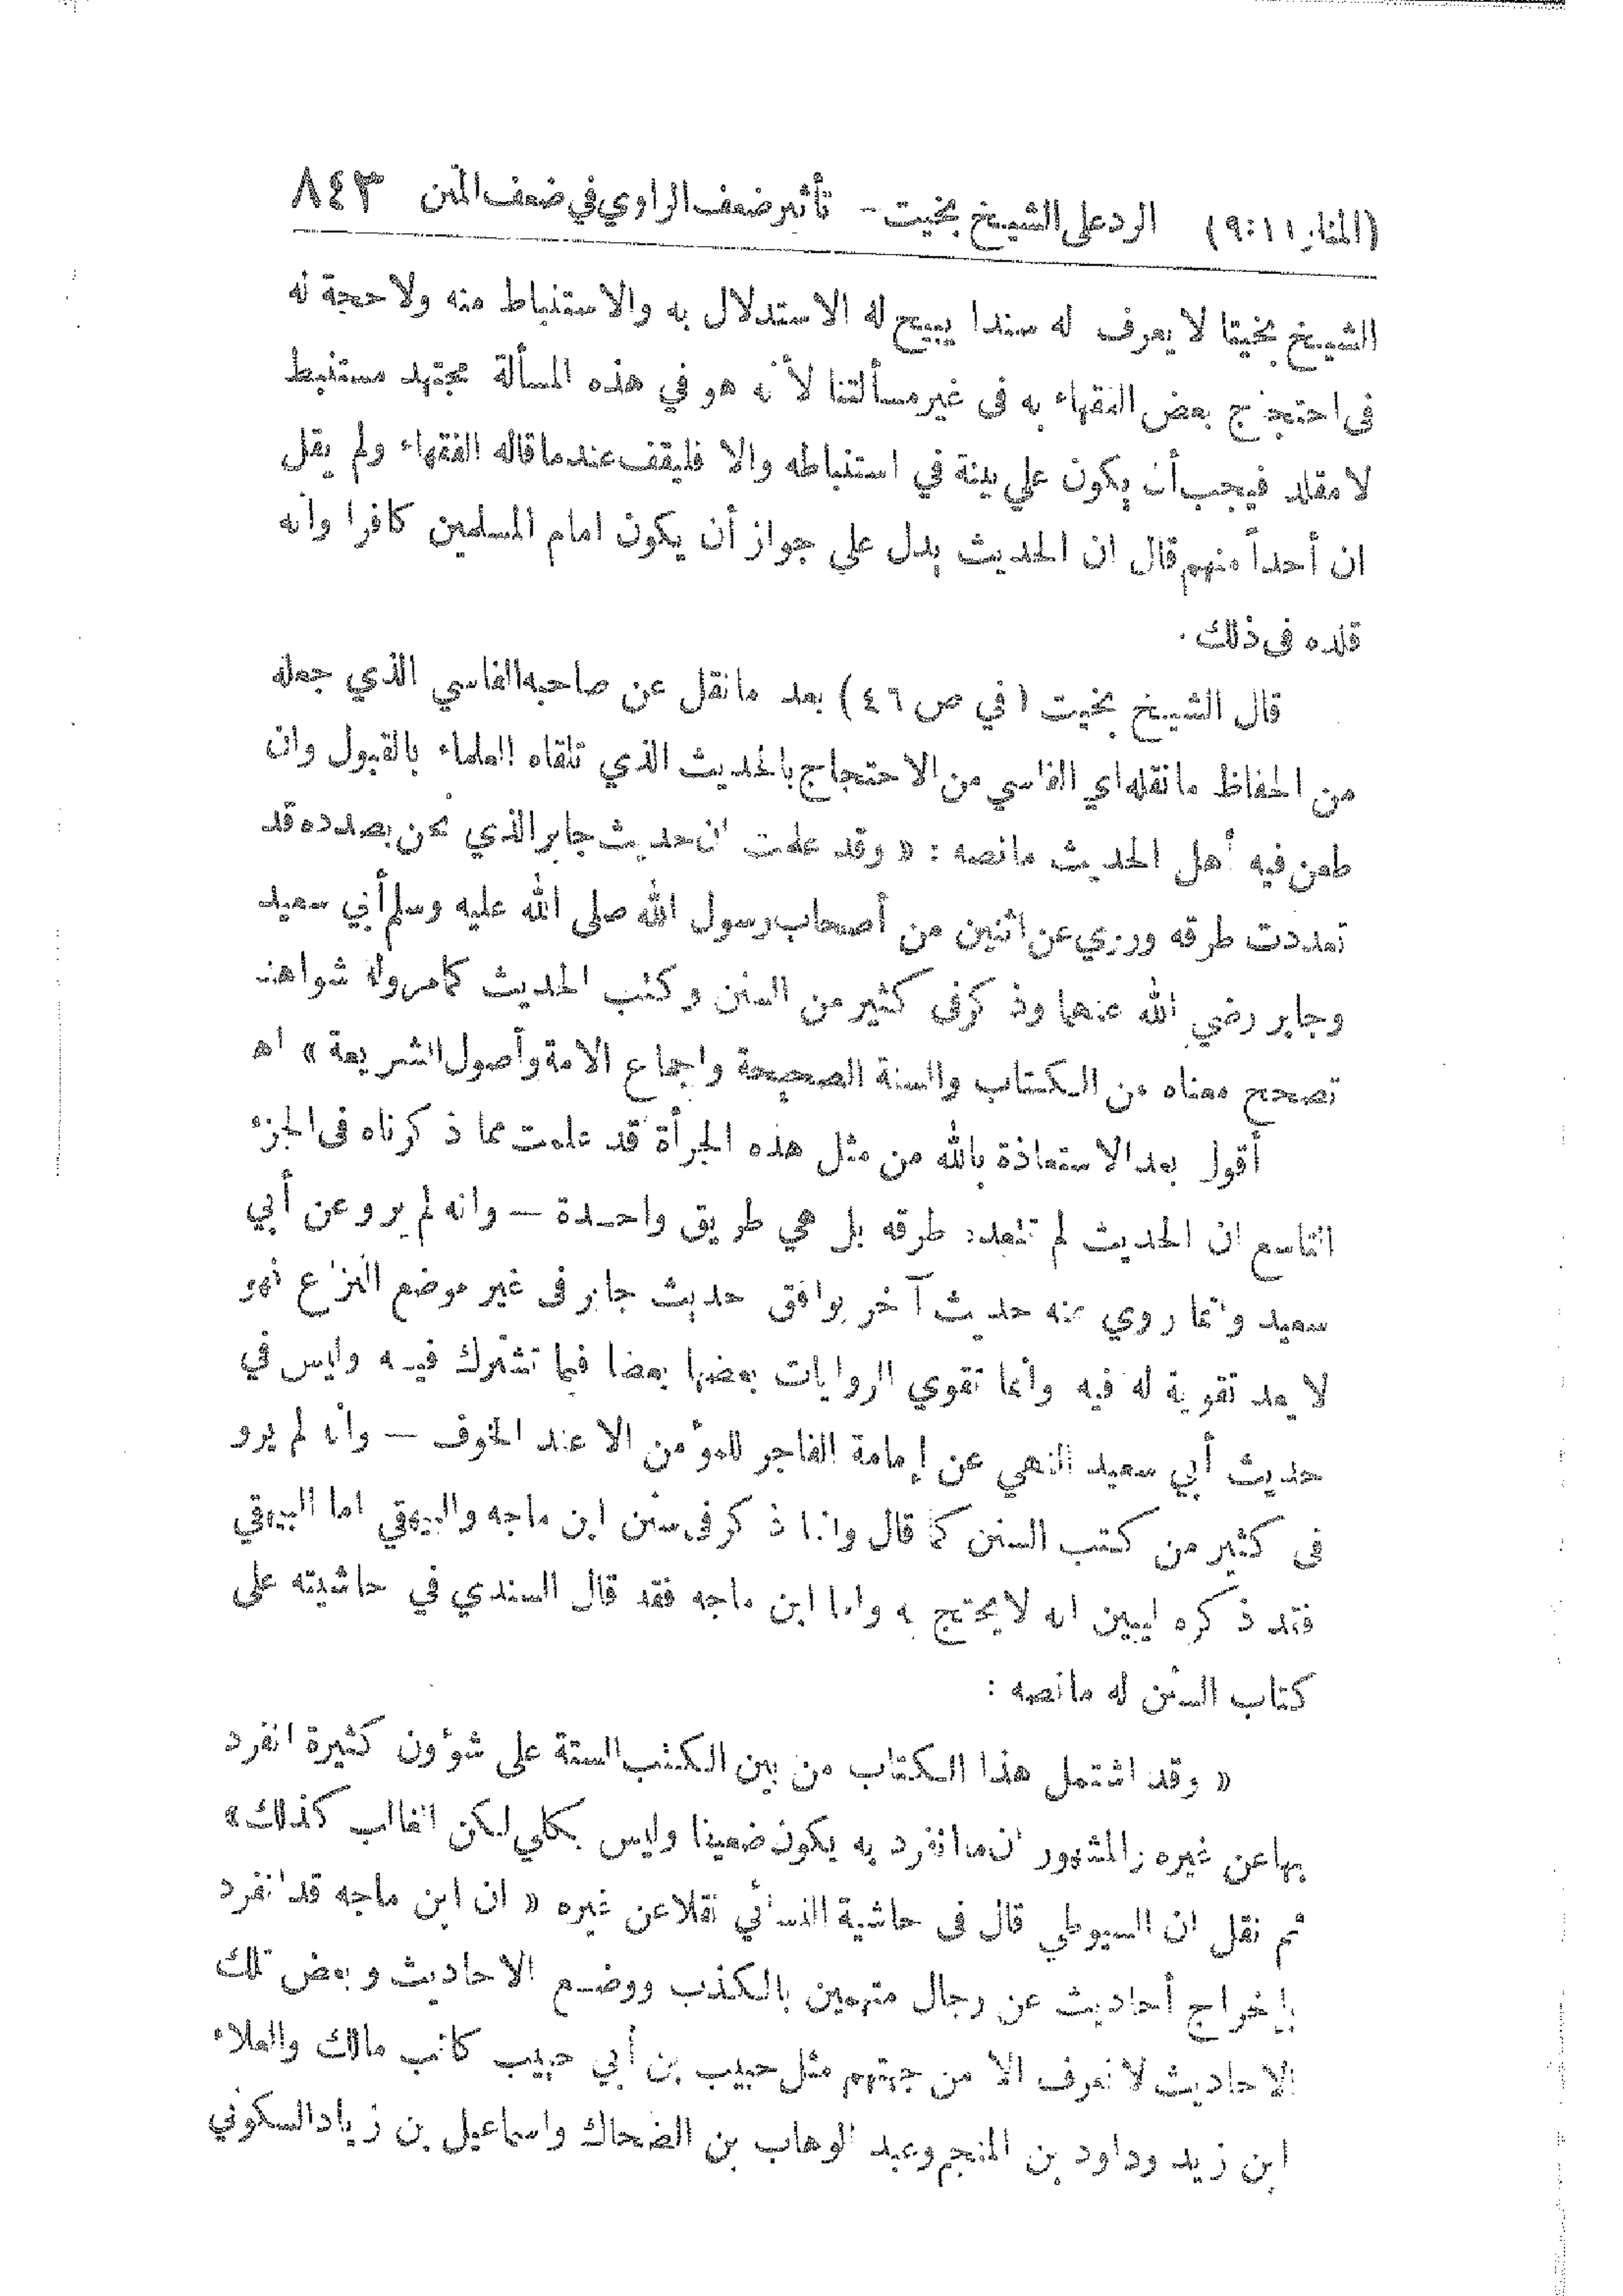 (المنار ١١:٩) الرد على الشيخ بخيت – تأثير ضعف الراوي في ضعف المتن ٨٤٣
الشيخ بخيتا لا يعرف له سندا يبيح له الاستدلال به والاستنباط منه ولا حجة له
في احتجاج بعض الفقهاء به في غير مسألتنا لأنه هو في هذه المسألة مجتهد مستنبط
لا مقلد فيجب أن يكون على بينة في استنباطه والا فليقف عند ما قاله الفقهاء ولم يقل
ان أحداً منهم قال ان الحديث يدل على جواز أن يكون امام المسلمين كافرا وانه
قلده في ذلك .
قال الشيخ بخيت ( في ص ٤٦ ) بعد ما نقل عن صاحبه الفاسي الذي جعله
من الحفاظ ما نقله اي الفاسي من الاحتجاج بالحديث الذي تلقاه العلماء بالقبول وان
طعن فيه أهل الحديث ما نصه : « وقد علمت ان حديث جابر الذي نحن بصدده قد
تعددت طرقه وروي عن اثنين من أصحاب رسول الله صلى الله عليه وسلم أبي سعيد
وجابر رضي الله عنهما وذكر في كثير من السنن وكتب الحديث كما مر وله شواهد
تصحح معناه من الكتاب والسنة الصحيحة واجماع الامة وأصول الشريعة » اهـ
أقول بعد الاستعاذة بالله من مثل هذه الجرأة قد علمت مما ذكرناه في الجزء
التاسع ان الحديث لم تتعدد طرقه بل هي طريق واحدة – وانه لم يرو عن أبي
سعيد وانما روي عنه حديث آخر يوافق حديث جابر في غير موضع النزاع فهو
لا يعد تقوية له فيه وانما تقوي الروايات بعضها بعضا فيما تشترك فيه وليس في
حديث أبي سعيد النهي عن إمامة الفاجر للمؤمن الا عند الخوف – وانه لم يرو
في كثير من كتب السنن كما قال وانما ذكر في سنن ابن ماجه والبيهقي اما البيهقي
فقد ذكره ليبين انه لا يحتج به واما ابن ماجه فقد قال السندي في حاشيته على
كتاب السنن له ما نصه :
« وقد اشتمل هذا الكتاب من بين الكتب الستة على شؤون كثيرة انفرد
بها عن غيره والمشهور ان ما انفرد به يكون ضعيفا وليس بكلي لكن الغالب كذلك »
ثم نقل ان السيوطي قال في حاشية النسائي نقلا عن غيره « ان ابن ماجه قد انفرد
بإخراج أحاديث عن رجال متهمين بالكذب ووضع الاحاديث وبعض تلك
الاحاديث لا تعرف الا من جهتهم مثل حبيب بن أبي حبيب كاتب مالك والعلاء
ابن زيد وداود بن المنجم وعبد الوهاب بن الضحاك واسماعيل بن زياد السكوني